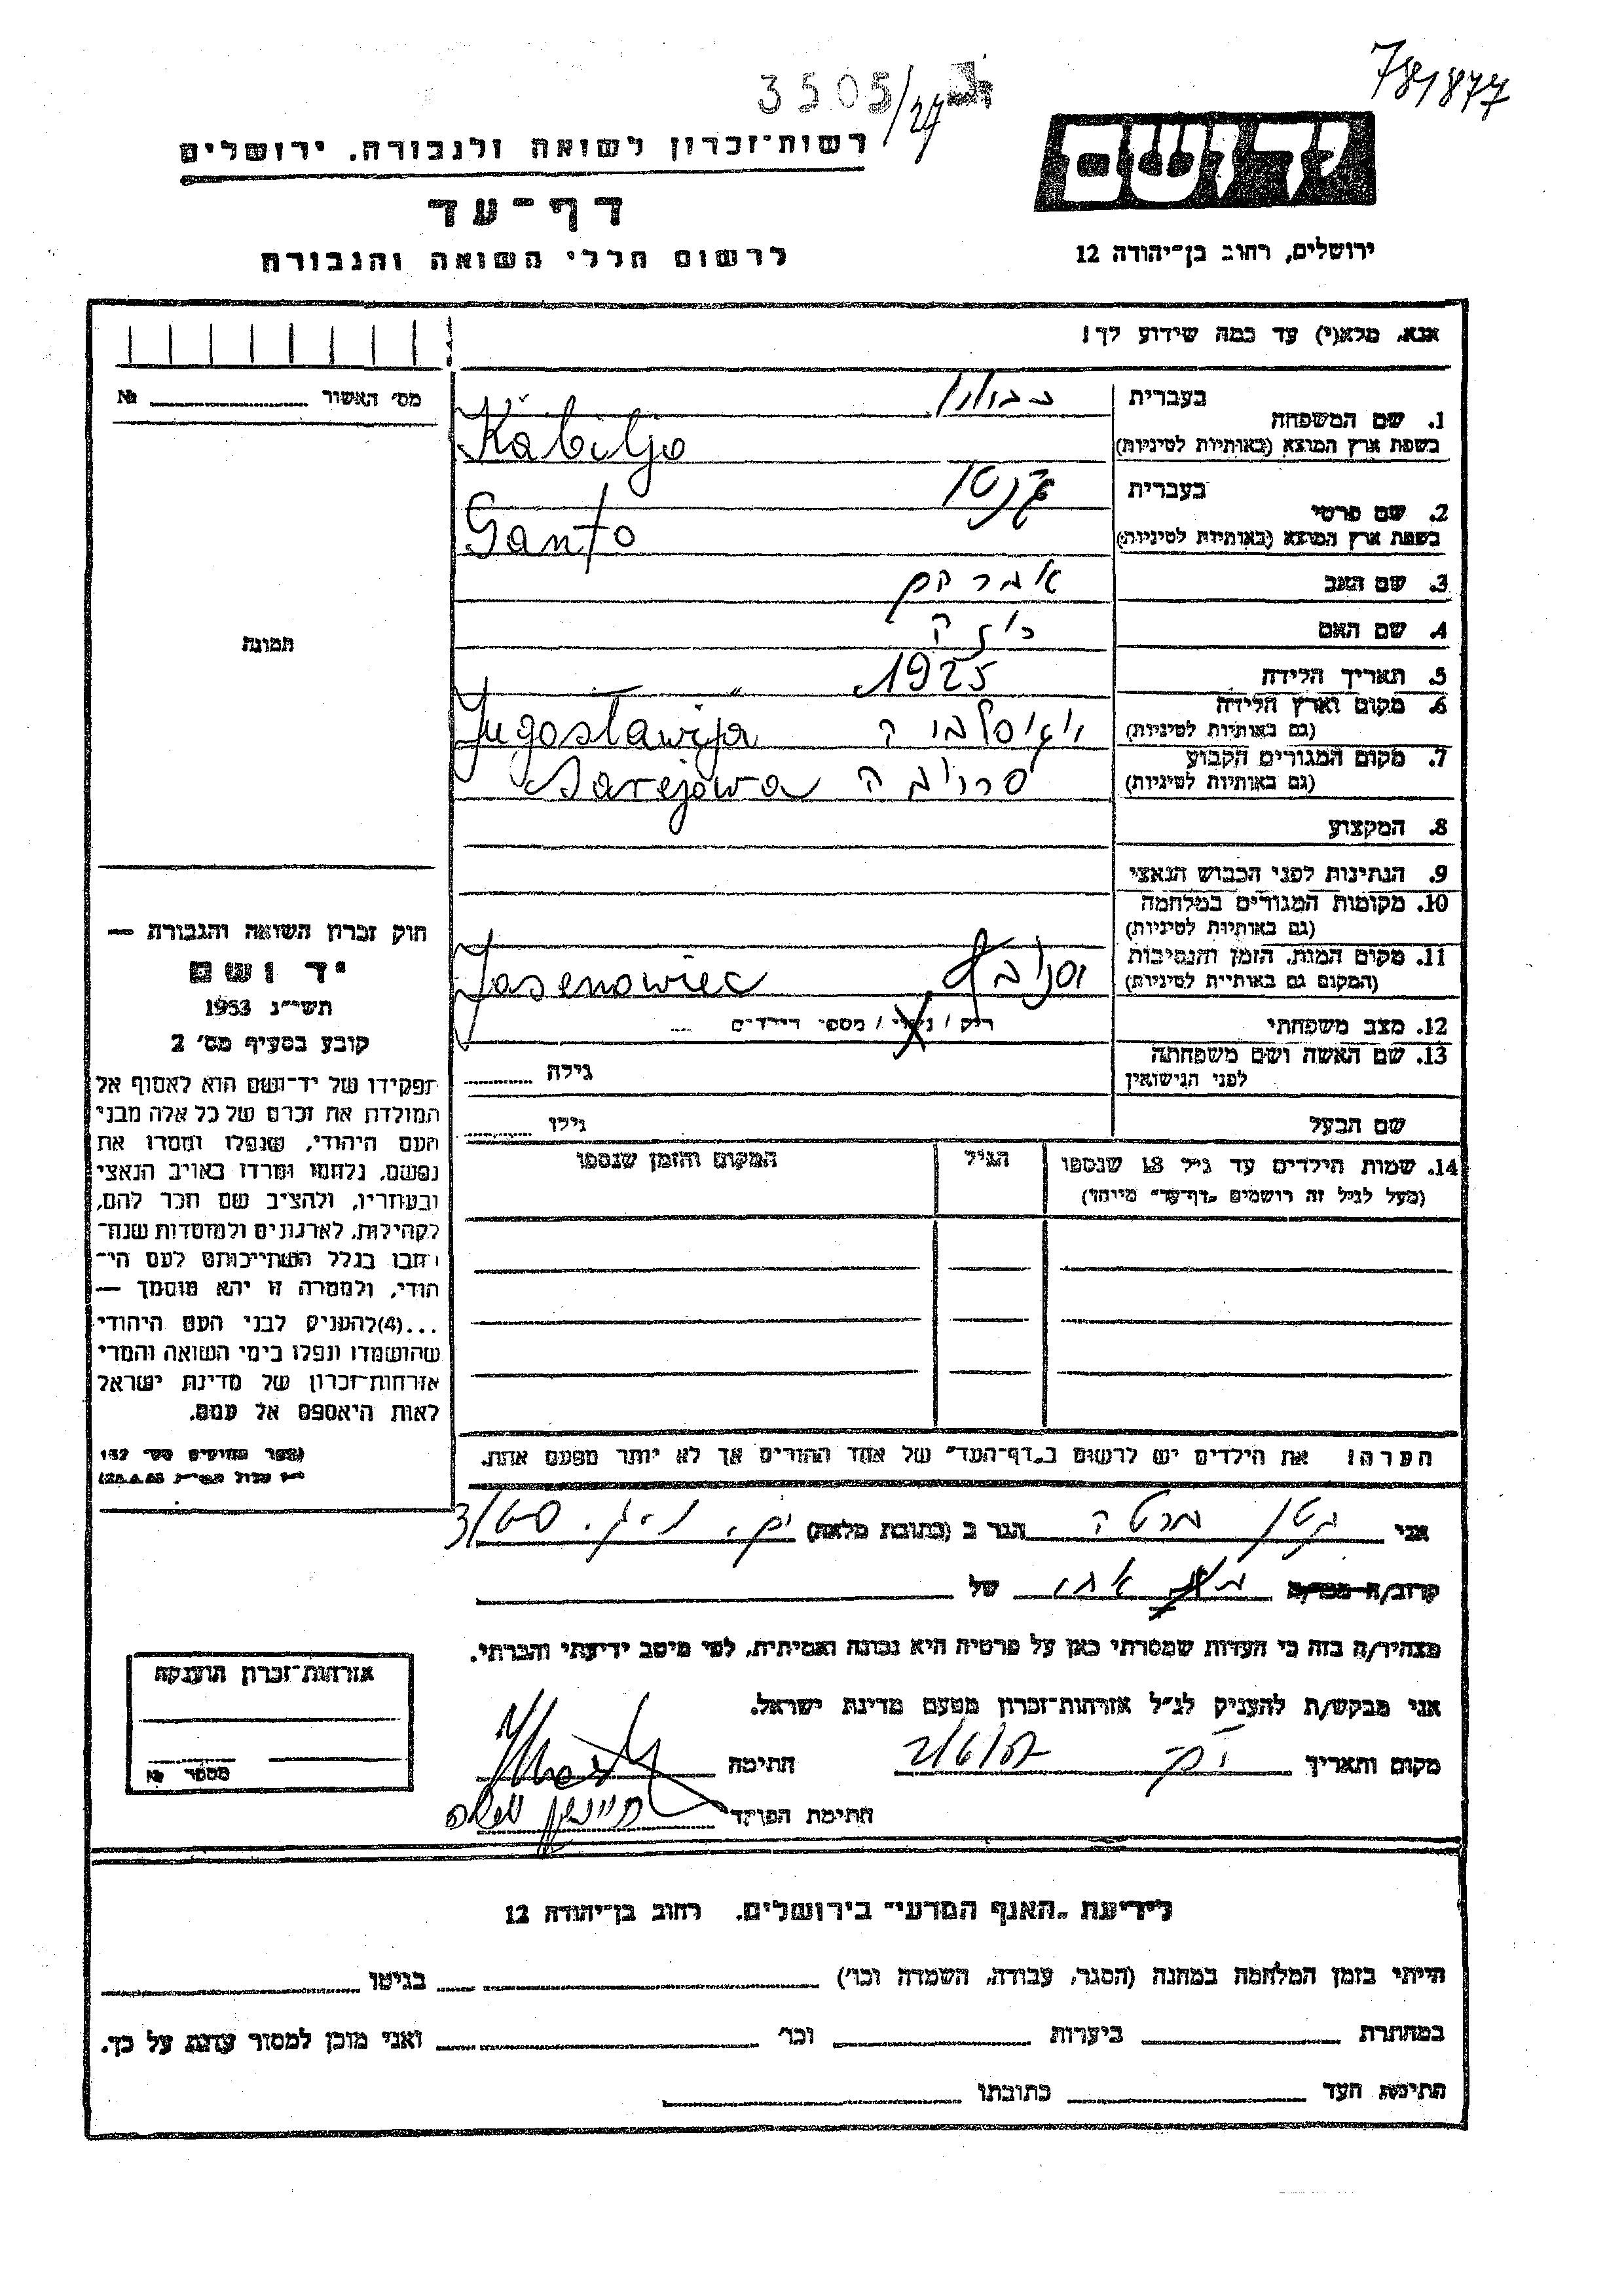 781877
3505/27
רשות־זכרון לשואה ולגבורה, ירושלים
דף־עד
לרשום חללי השואה והגבורה
יד ושם
ירושלים, רחוב בן־יהודה 12
אנא, מלא(י) עד כמה שידוע לך!
מס׳ האשור № 
תמונה
1. שם המשפחה
בעברית
בשפת ארץ המוצא (באותיות לטיניות)
Kabiljo
2. שם פרטי
בעברית
בשפת ארץ המוצא (באותיות לטיניות)
Santo
3. שם האב אברהם
4. שם האם
5. תאריך הלידה 1925
6. מקום וארץ הלידה
(גם באותיות לטיניות)
Jugoslawija
7. מקום המגורים הקבוע
(גם באותיות לטיניות)
Sarejowa
8. המקצוע
9. הנתינות לפני הכבוש הנאצי
10. מקומות המגורים במלחמה
(גם באותיות לטיניות)
11. מקום המות, הזמן והנסיבות
(המקום גם באותיות לטיניות)
Jasenowiec
12. מצב משפחתי רוק / נשוי / מספר הילדים
13. שם האשה ושם משפחתה
לפני הנישואין
גילה
שם הבעל גילו
14. שמות הילדים עד גיל 18 שנספו
(מעל לגיל זה רושמים „דף־עד״ מיוחד)
הגיל
המקום והזמן שנספו
הערה: את הילדים יש לרשום ב„דף־העד״ של אחד ההורים אך לא יותר מפעם אחת.
חוק זכרון השואה והגבורה —
יד ושם
תשי״ג 1953
קובע בסעיף מס׳ 2
תפקידו של יד־ושם הוא לאסוף אל
המולדת את זכרם של כל אלה מבני
העם היהודי, שנפלו ומסרו את
נפשם, נלחמו ומרדו באויב הנאצי
ובעוזריו, ולהציב שם וזכר להם,
לקהילות, לארגונים ולמוסדות שנח־
רבו בגלל השתייכותם לעם הי־
הודי, ולמטרה זו יהא מוסמך —
...(4) להעניק לבני העם היהודי
שהושמדו ונפלו בימי השואה והמרי
אזרחות־זכרון של מדינת ישראל
לאות היאספם אל עמם.
אני הגר ב (כתובת מלאה)
קרוב/ה של
מצהיר/ה בזה כי העדות שמסרתי כאן על פרטיה היא נכונה ואמיתית, לפי מיטב ידיעתי והכרתי.
אני מבקש/ת להעניק לנ״ל אזרחות־זכרון מטעם מדינת ישראל.
מקום ותאריך חתימה
חתימת הפוקד
אזרחות־זכרון הוענקה
מספר №
לידיעת „האגף המדעי״ בירושלים, רחוב בן־יהודה 12
הייתי בזמן המלחמה במחנה (הסגר, עבודה, השמדה וכו׳) בגיטו
במחתרת ביערות וכו׳ ואני מוכן למסור עדות על כך.
חתימת העד כתובתו